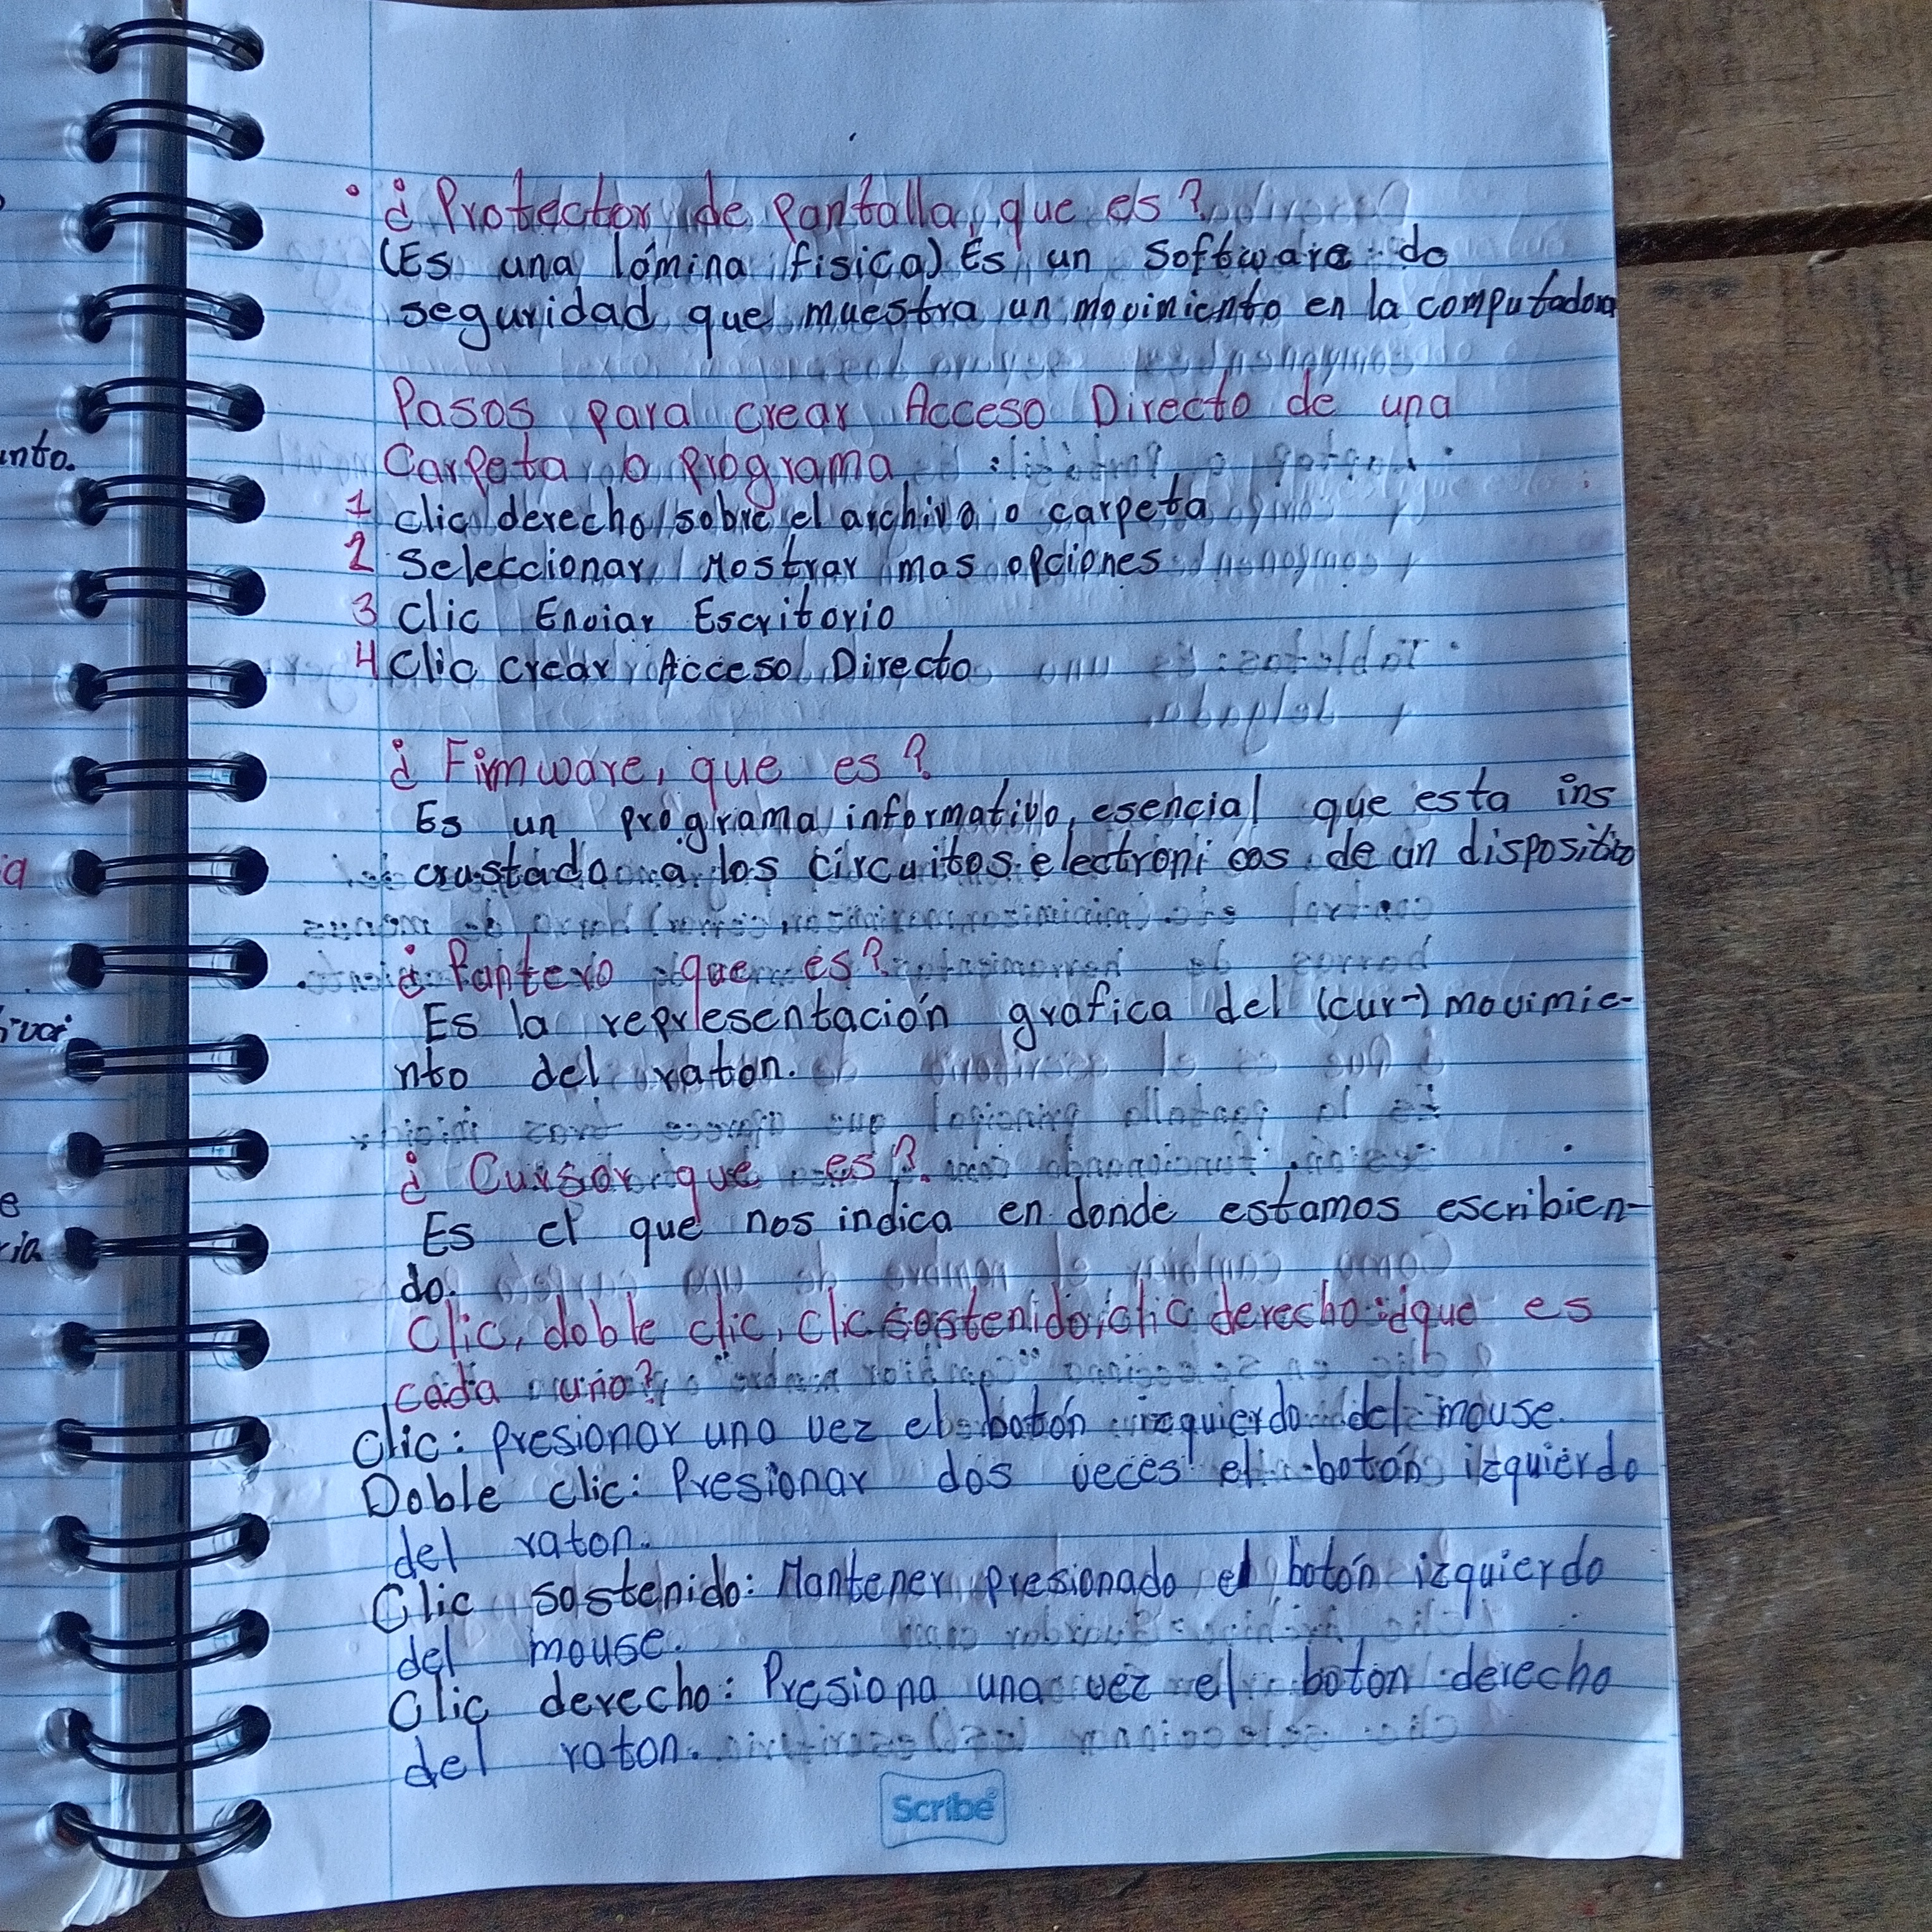 ¿Protector de pantalla, que es?
(Es una lámina fisica) Es un Software de
seguridad que muestra un movimiento en la computadora
Pasos para crear Acceso Directo de una
Carpeta o Programa
1 clic derecho sobre el archivo o carpeta
2 Seleccionar Mostrar mas opciones
3 Clic Enviar Escritorio
4 Clic crear Acceso Directo
¿Firmware, que es?
Es un programa informativo, esencial que esta ins
crustado a los circuitos electronicos de un dispositivo
¿Puntero que es?
Es la representación grafica del (cur-) movimie-
nto del raton.
¿Cursor que es?
Es el que nos indica en donde estamos escribien-
do.
Clic, doble clic, clic sostenido, clic derecho: ¿que es
cada uno?
Clic: presionar una vez el botón izquierdo del mouse.
Doble clic: Presionar dos veces el botón izquierdo
del raton.
Clic sostenido: Mantener presionado el botón izquierdo
del mouse.
Clic derecho: Presiona una vez el boton derecho
del raton.
Scribe
nto.
a
e
ria